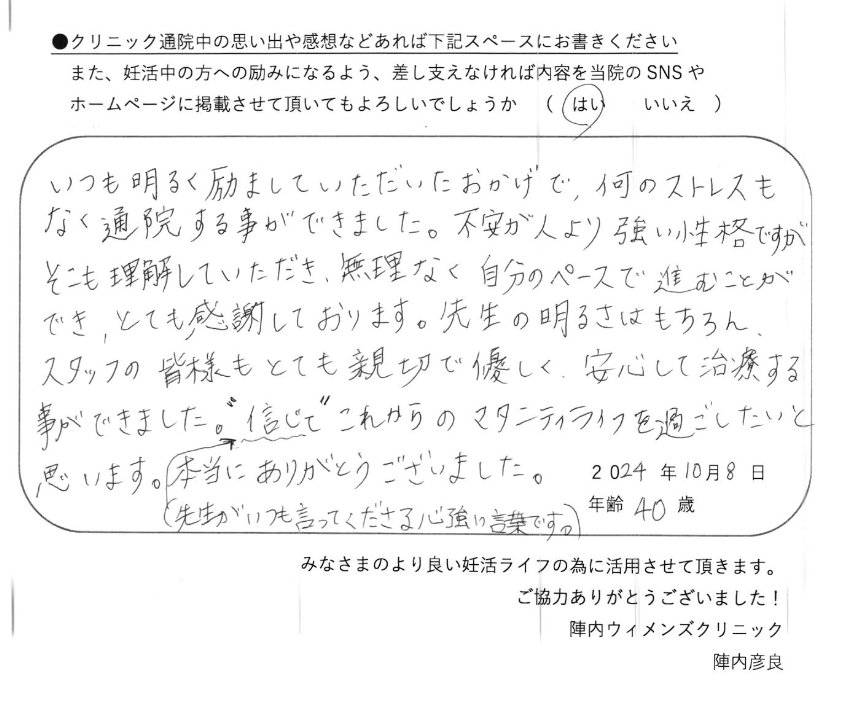 ●クリニック通院中の思い出や感想などあれば下記スペースにお書きください
また、妊活中の方への励みになるよう、差し支えなければ内容を当院の SNS や
ホームページに掲載させて頂いてもよろしいでしょうか （ はい いいえ ）
いつも明るく励ましていただいたおかげで、何のストレスも
なく通院する事ができました。不安が人より強い性格ですが
そこも理解していただき、無理なく自分のペースで進むことが
でき、とても感謝しております。先生の明るさはもちろん、
スタッフの皆様もとても親切で優しく、安心して治療する
事ができました。“信じて”これからのマタニティライフを過ごしたいと
思います。本当にありがとうございました。
(先生がいつも言ってくださる心強い言葉です。)
2024 年 10月 8 日
年齢 40 歳
みなさまのより良い妊活ライフの為に活用させて頂きます。
ご協力ありがとうございました！
陣内ウィメンズクリニック
陣内彦良